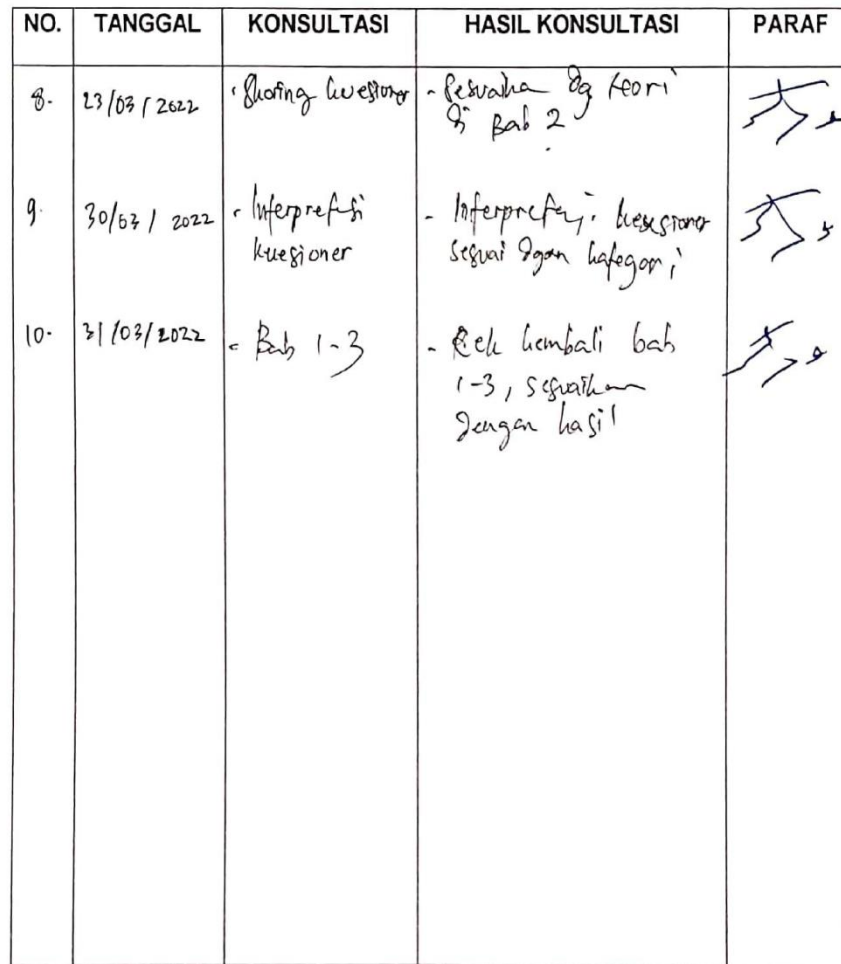 NO. TANGGAL KONSULTASI HASIL KONSULTASI PARAF
8. 23/03/2022 - Skoring kuesioner - Sesuaikan dg teori
di Bab 2
9. 30/03/2022 - Interpretasi - Interpretasi kuesioner
kuesioner sesuai dgan kategori
10. 31/03/2022 - Bab 1-3 - Cek kembali bab
1-3, sesuaikan
dengan hasil